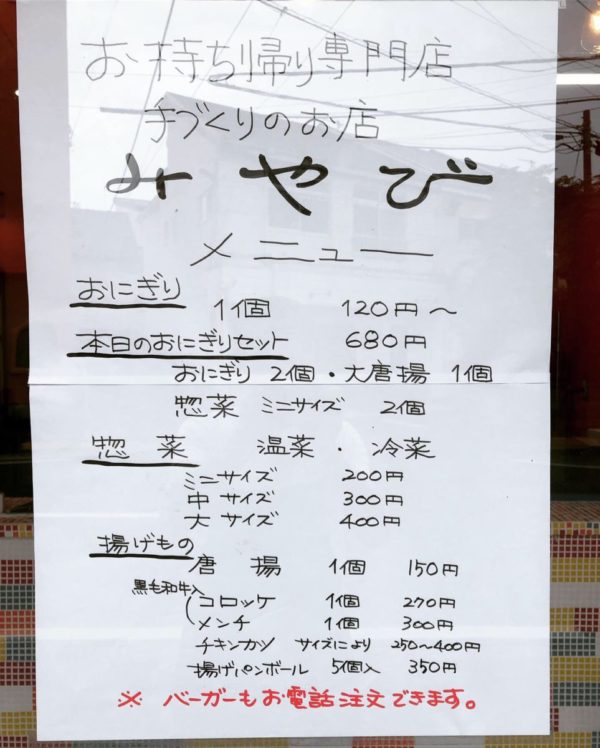 お持ち帰り専門店
手づくりのお店
みやび
メニュー
おにぎり 1個 120円〜
本日のおにぎりセット 680円
おにぎり 2個・大唐揚 1個
惣菜 ミニサイズ 2個
惣菜 温菜・冷菜
ミニサイズ 200円
中サイズ 300円
大サイズ 400円
揚げもの
唐揚 1個 150円
黒毛和牛入
コロッケ 1個 270円
メンチ 1個 300円
チキンカツ サイズにより 250〜400円
揚げパンボール 5個入 350円
※ バーガーもお電話注文できます。